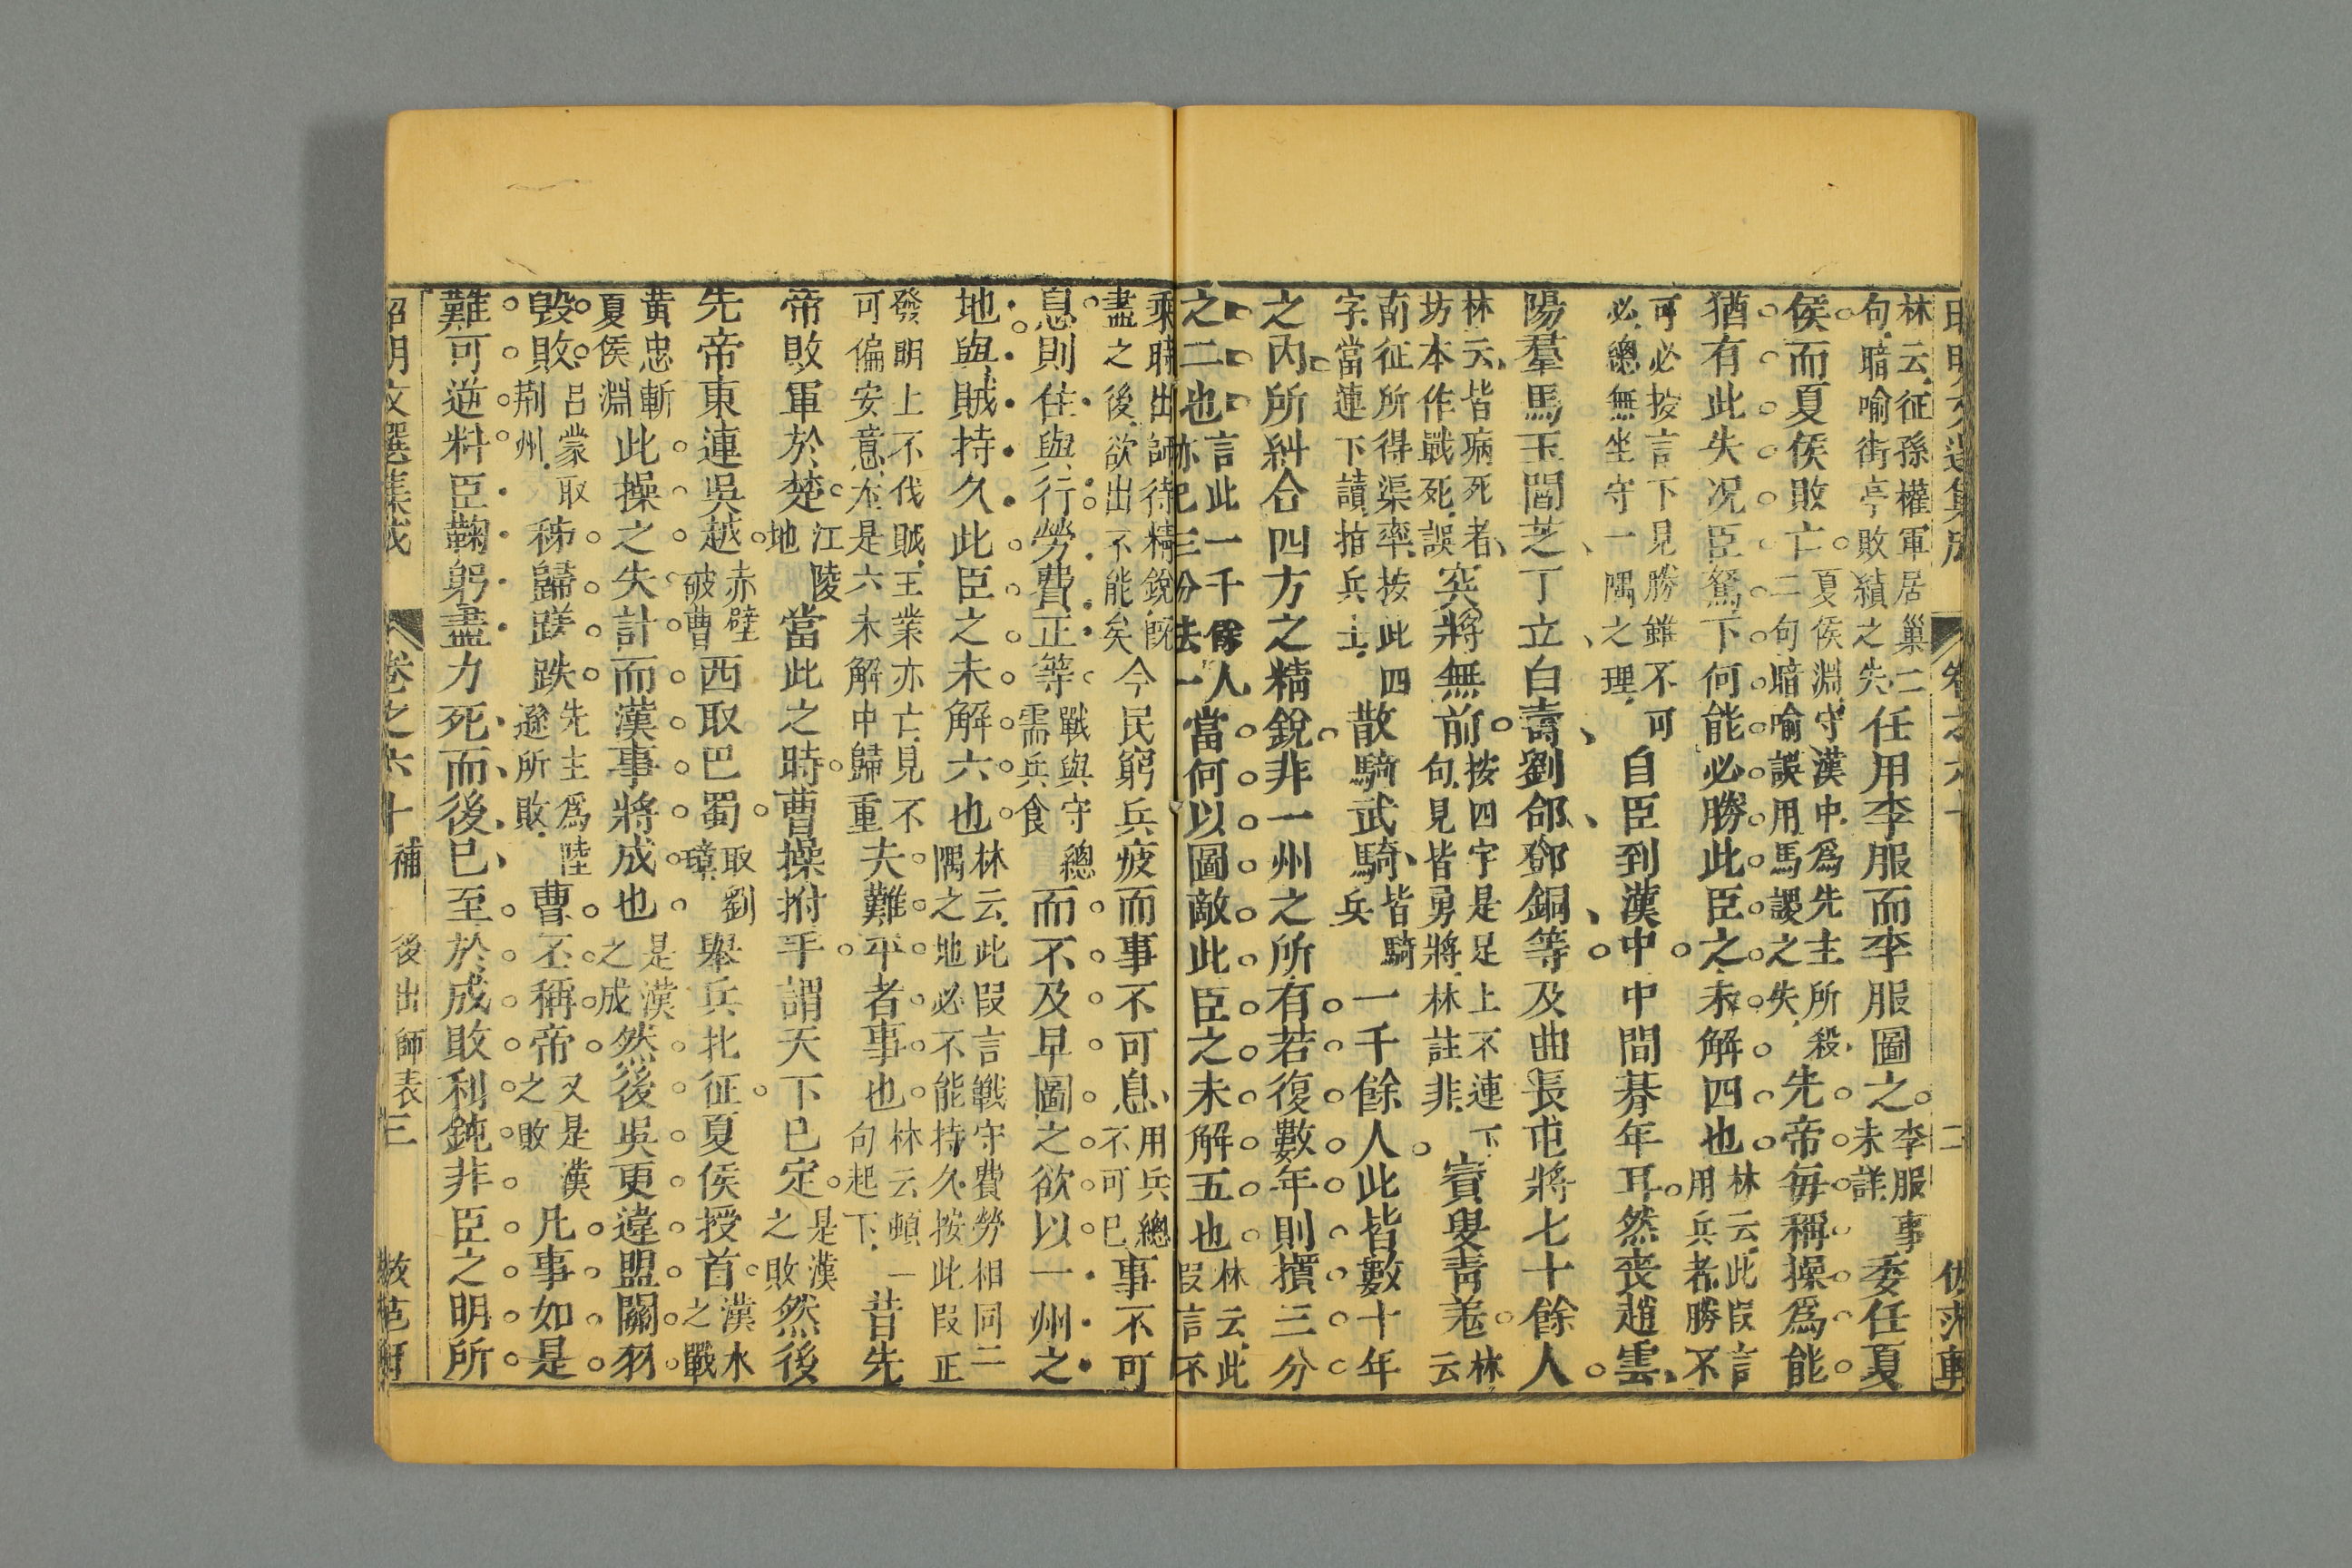 昭明文選集成 卷之六十 二 仿范軒
林云征孫權軍居巢二句暗喻街亭敗績之失任用李服而李服圖之李服事未詳委任夏
侯而夏侯敗亡夏侯淵守漢中爲先主所殺二句暗喻誤用馬謖之失先帝每稱操爲能
猶有此失况臣駑下何能必勝此臣之未解四也林云此叚言用兵者勝不
可必按言下見勝雖不可必總無坐守一隅之理自臣到漢中中間朞年耳然喪趙雲
陽羣馬玉閻芝丁立白壽劉郃鄧銅等及曲長屯將七十餘人
林云皆病死者坊本作戰死誤突將無前按四字是足上不連下句見皆勇將林註非賨叟青羗林云
南征所得渠率按此四字當連下讀指兵士散騎武騎皆騎兵一千餘人此皆數十年
之内所糾合四方之精銳非一州之所有若復數年則損三分
之二也言此一千餘人亦已三分去一當何以圖敵此臣之未解五也林云此叚言不
乘時出師待精銳旣盡之後欲出不能矣今民窮兵疲而事不可息用兵總不可已事不可
息則住與行勞費正等戰與守總需兵食而不及早圖之欲以一州之
地與賊持久此臣之未解六也林云此叚言戰守費勞相同二隅之地必不能持久按此叚正
發明上不伐賊王業亦亡見不可偏安意不是六未解中歸重夫難平者事也林云頓一句起下昔先
帝敗軍於楚江陵地當此之時曹操拊手謂天下已定是漢之敗然後
先帝東連吳越赤壁破曹西取巴蜀取劉璋舉兵北征夏侯授首漢水之戰
黃忠斬夏侯淵此操之失計而漢事將成也是漢之成然後吳更違盟關羽
毀敗呂蒙取荆州秭歸蹉跌先主爲陸遜所敗曹丕稱帝又是漢之敗凡事如是
難可逆料臣鞠躬盡力死而後已至於成敗利鈍非臣之明所
昭明文選集成 卷之六十補 後出師表 三 仿范軒